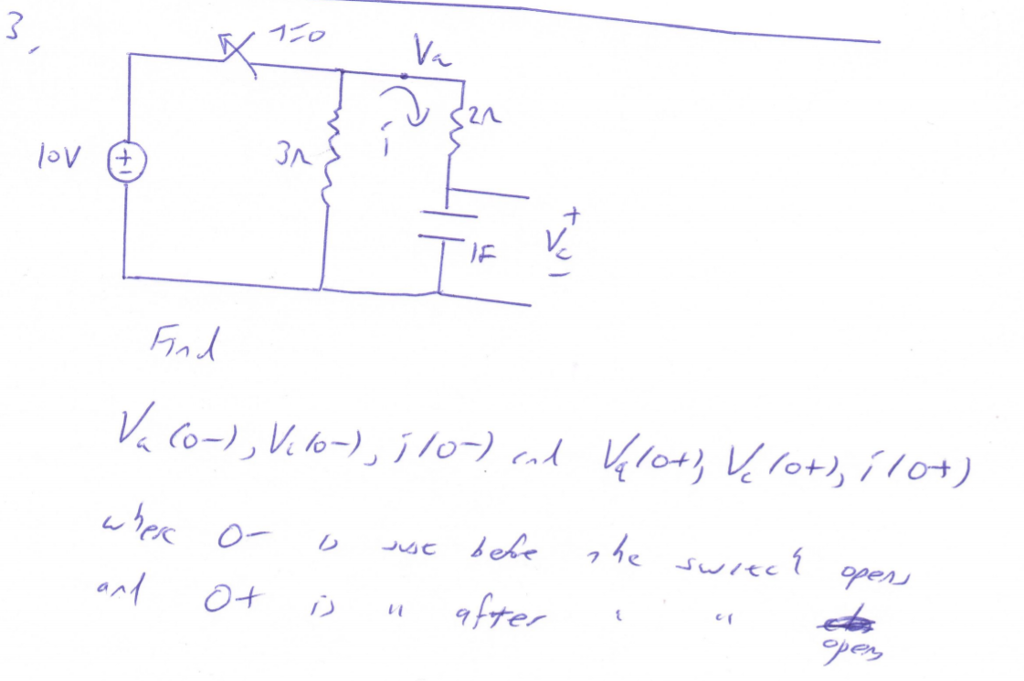 3,
t=0
Va
2Ω
10V
3Ω
i
+
Vc
-
1F
Find
Va (0-), Vc (0-), i (0-) and Va (0+), Vc (0+), i (0+)
where 0- is just before the switch opens
and 0+ is " after " "
opens